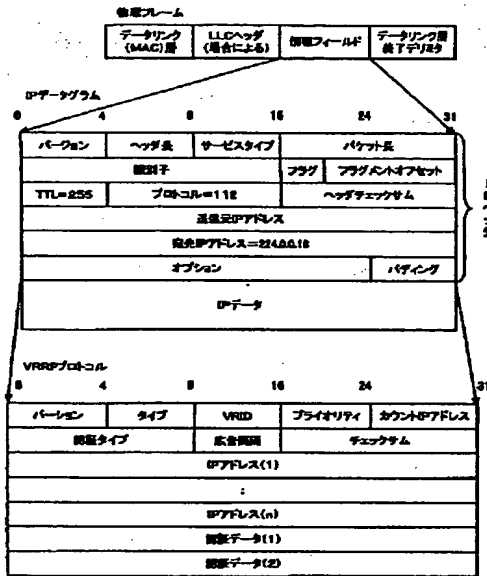 物理フレーム
データリンク
(MAC)層
LLCヘッダ
(場合による)
情報フィールド
データリンク層
終了デリミタ
IPデータグラム
0 4 8 16 24 31
バージョン ヘッダ長 サービスタイプ パケット長
識別子 フラグ フラグメントオフセット
TTL=255 プロトコル=112 ヘッダチェックサム
送信元IPアドレス
宛先IPアドレス=224.0.0.18
オプション パディング
IPデータ
VRRPプロトコル
0 4 8 16 24 31
バーション タイプ VRID プライオリティ カウントIPアドレス
認証タイプ 広告間隔 チェックサム
IPアドレス(1)
:
IPアドレス(n)
認証データ(1)
認証データ(2)